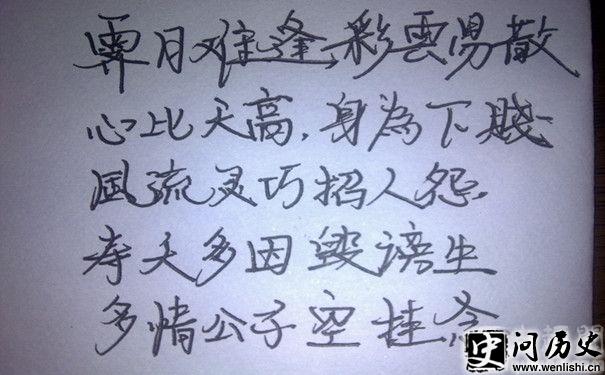 霽月难逢,彩雲易散
心比天高,身為下賤
風流灵巧招人怨,
寿夭多因毁谤生
多情公子空挂念
史问历史
www.wenlishi.cn